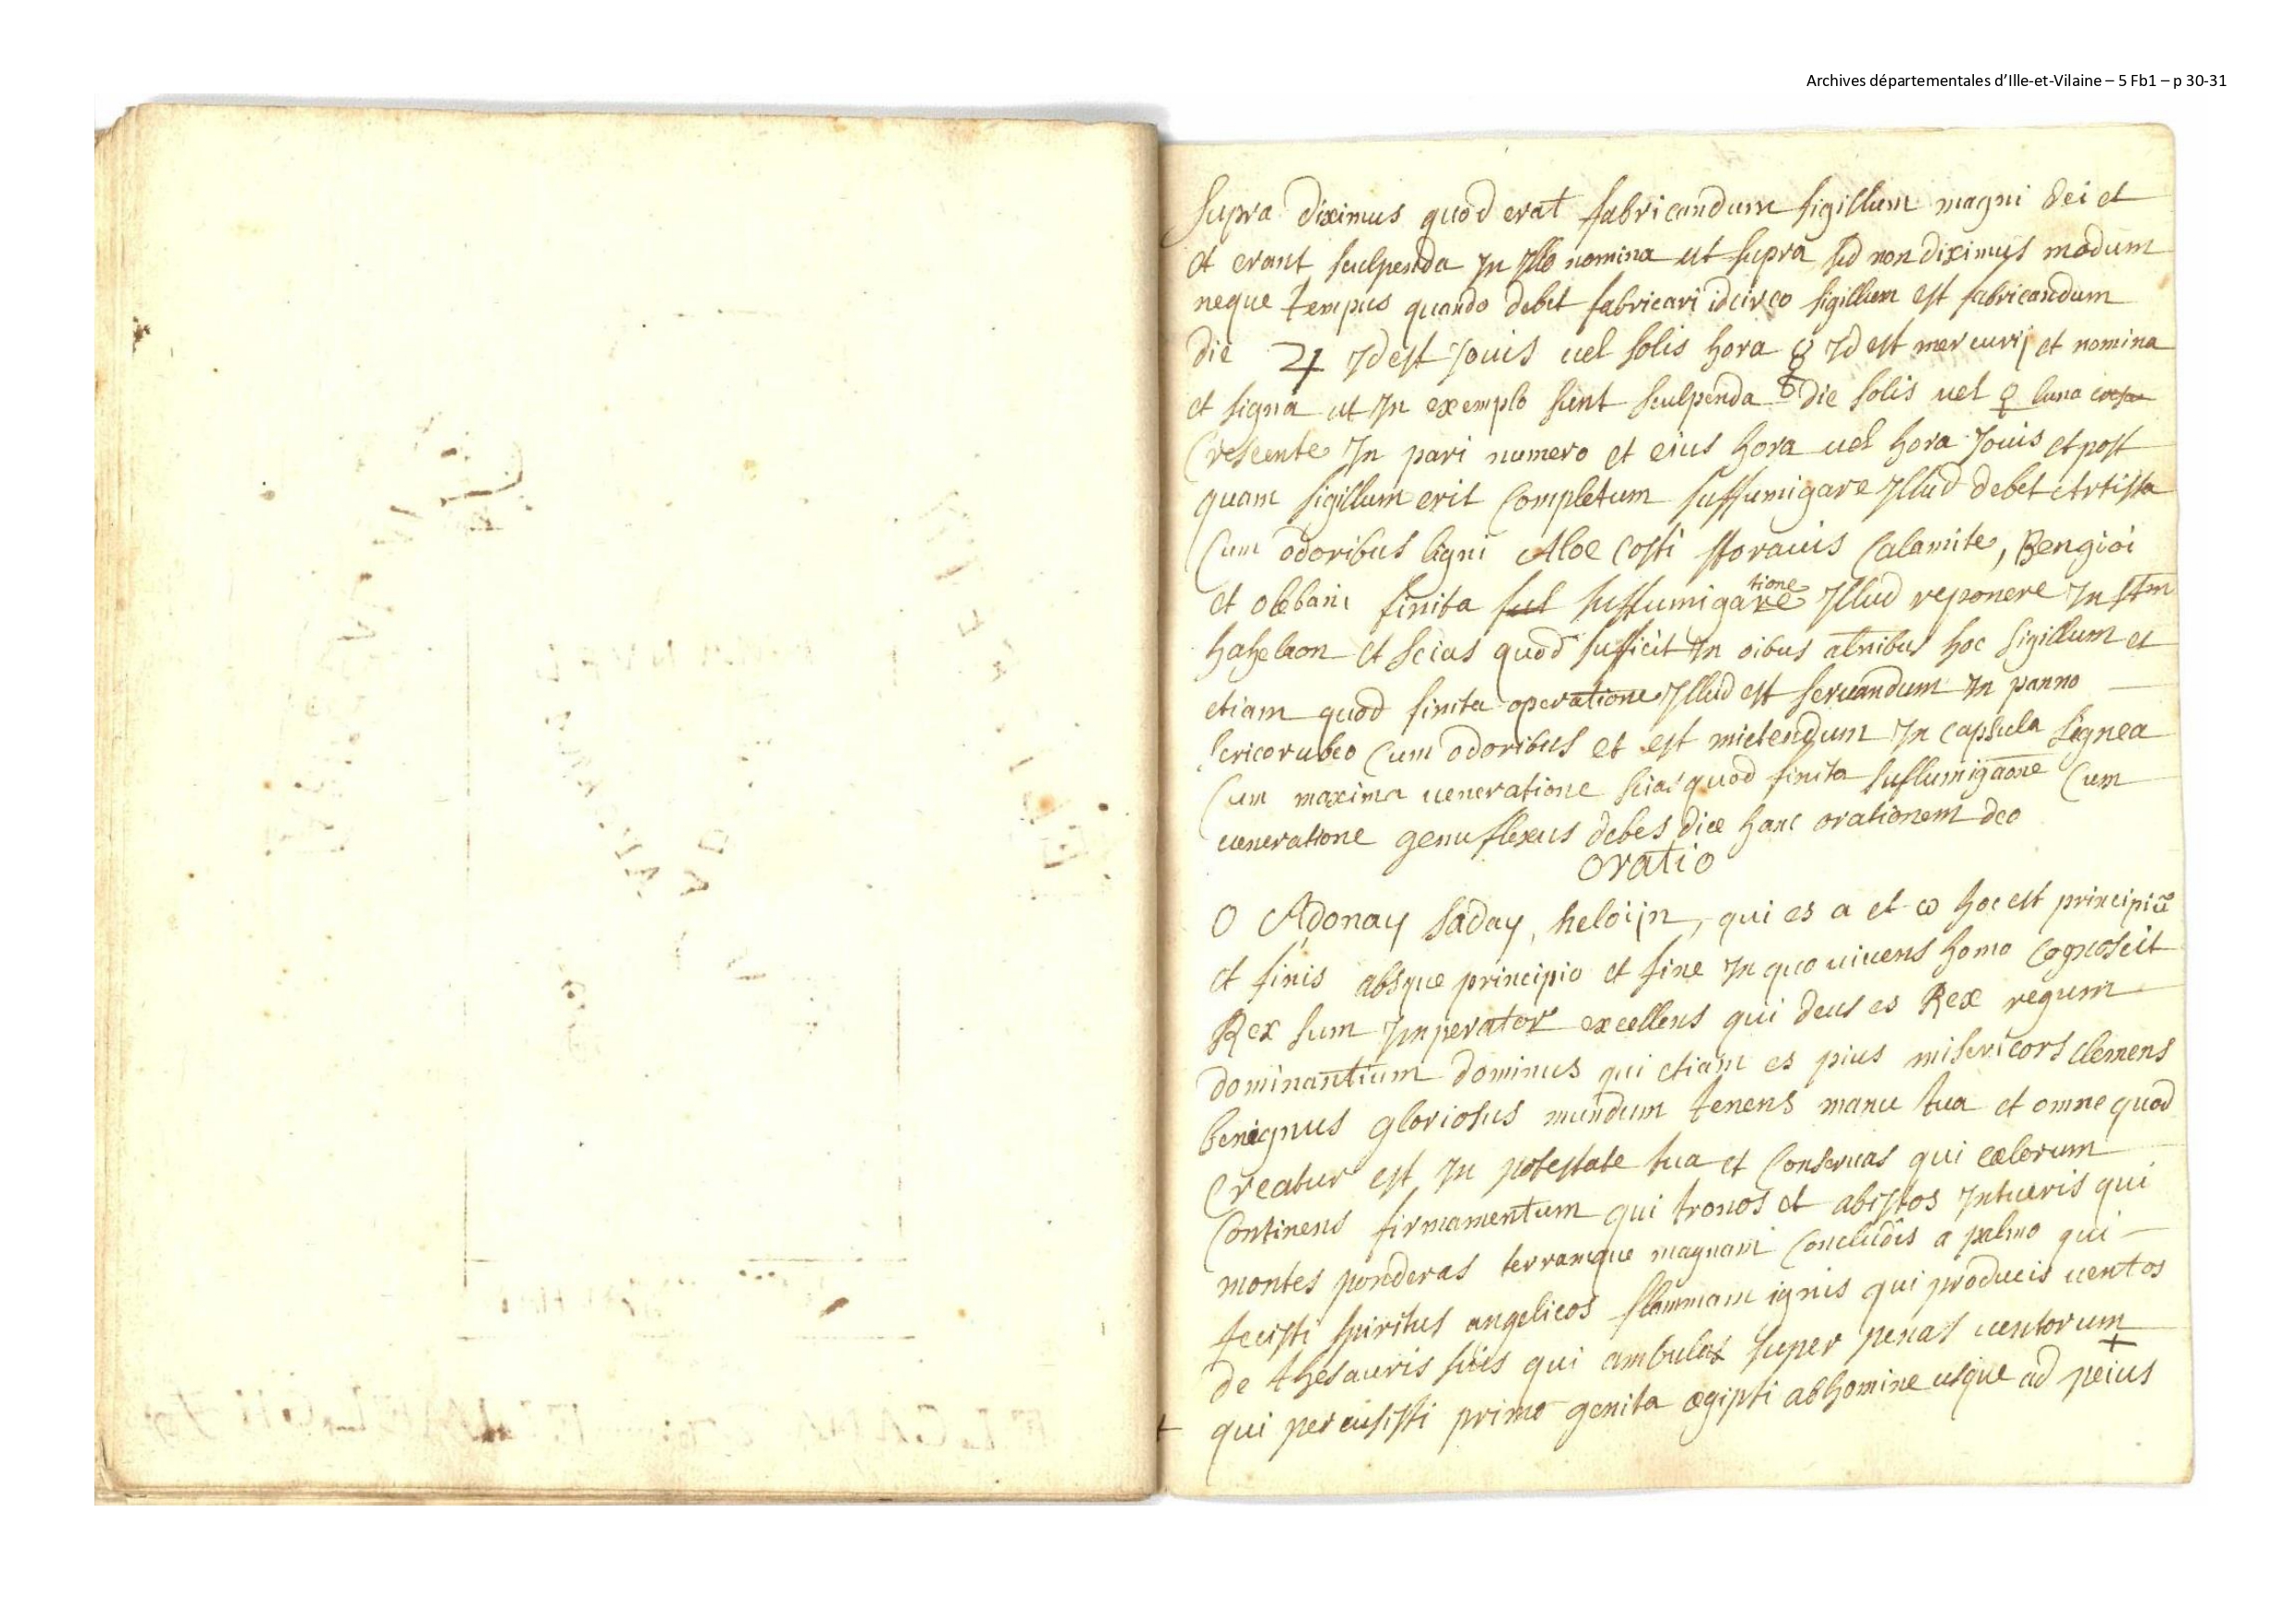 Archives départementales d'Ille-et-Vilaine – 5 Fb1 – p 30-31
supra diximus quod erat fabricandum sigillum magni dei et
et erant sculpenda In Illo nomina ut supra sed non diximus modum
neque tempus quando debet fabricari idcirco sigillum est fabricandum
die ♃ Id est Jouis uel solis hora ☿ Id est mercurij et nomina
et signa ut In exemplo sunt sculpenda die solis uel ♀ luna
Crescente In pari numero et eius hora uel hora Jouis et post
quam sigillum erit Completum suffumigare Illud debet Artista
Cum odoribus ligni Aloe Costi storacis Calamite, Bengioi
et olebani finita sul suffumigatione Illud reponere In stm
hahelion et scias quod sufficit In oibus alnibus hoc sigillum et
etiam quod finita operatione Illud est seruandum In panno
sericorubeo Cum odoribus et est mictendum In capsula lignea
Cum maxima ueneratione scias quod finita suffumigaone Cum
ueneratione genuflexus debes dice hanc orationem deo
oratio
O Adonay saday, heloijn, qui es a et ω hoc est principiū
et finis absque principio et fine In quo uiuens homo Cognoscit
Rex sum Imperator excellens qui deus es Rex regum
dominantium dominus qui etiam es pius misericors clemens
benignus gloriosus mundum tenens manu tua et omne quod
Creatur est In potestate tua et Conseruas qui cælorum
Continens firmamentum qui tronos et abissos Intueris qui
montes ponderas terramque magnam Concludis a palmo qui
fecisti spiritus angelicos flammam ignis qui producis uentos
de thesauris suis qui ambulas super penas uentorum
+ qui percusisti primo genita ægipti abhomine usque ad peius +